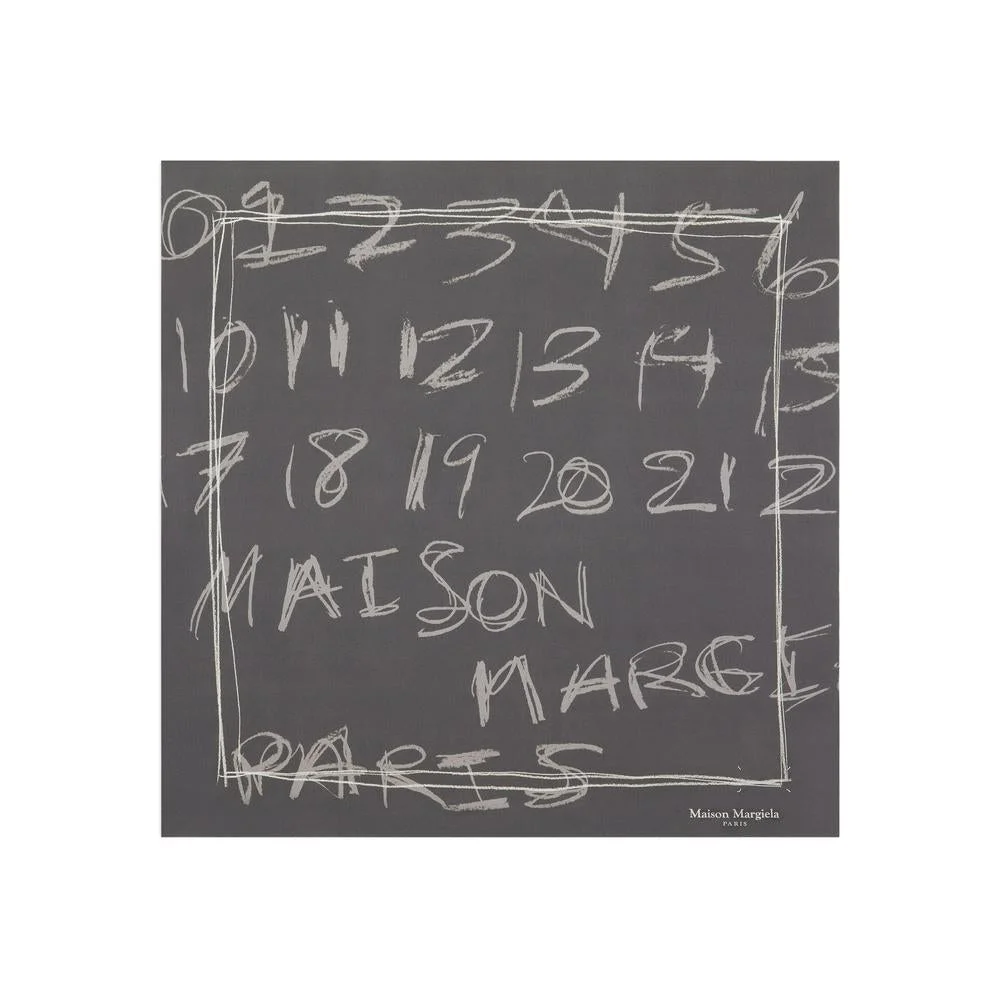 0 1 2 3 4 5 6
10 11 12 13 14 15
17 18 19 20 21 2
MAISON
MARGI
PARIS
Maison Margiela
PARIS